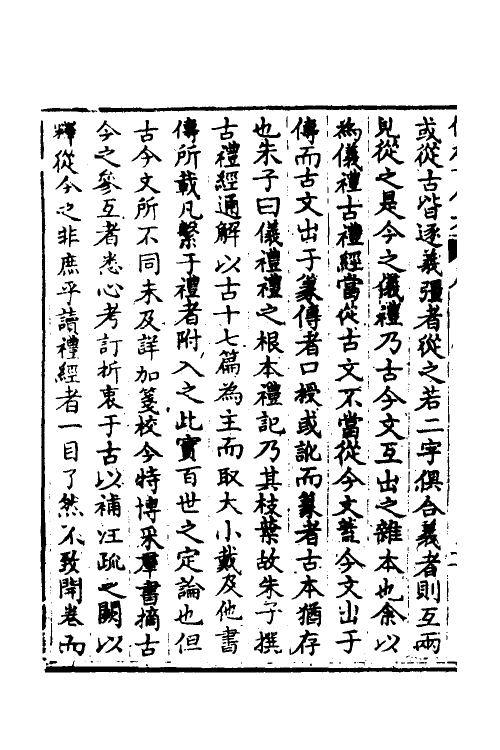 或從古皆逐義彊者從之若二字俱合義者則互兩
見從之是今之儀禮乃古今文互出之雜本也余以
為儀禮古禮經當從古文不當從今文蓋今文出于
傳而古文出于篆傳者口授或訛而篆者古本猶存
也朱子曰儀禮禮之根本禮記乃其枝葉故朱子撰
古禮經通解以古十七篇為主而取大小戴及他書
傳所載凡繫于禮者附入之此實百世之定論也但
古今文所不同未及詳加箋校今特博采羣書摘古
今之參互者悉心考訂折衷于古以補注疏之闕以
釋從今之非庶乎讀禮經者一目了然不致開卷而